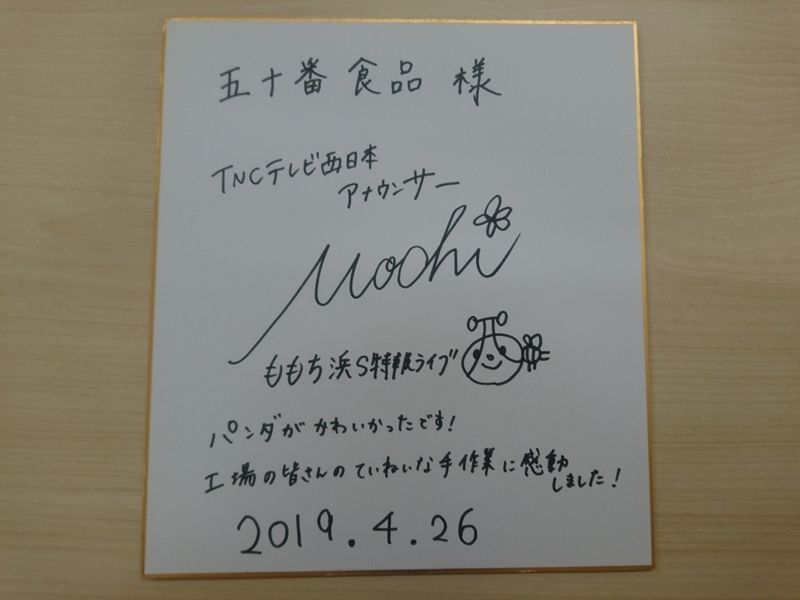 五十番 食品 様
TNCテレビ西日本
アナウンサー
Mochi
ももち浜S特報ライブ
パンダがかわいかったです!
工場の皆さんのていねいな手作業に感動
しました!
2019.4.26